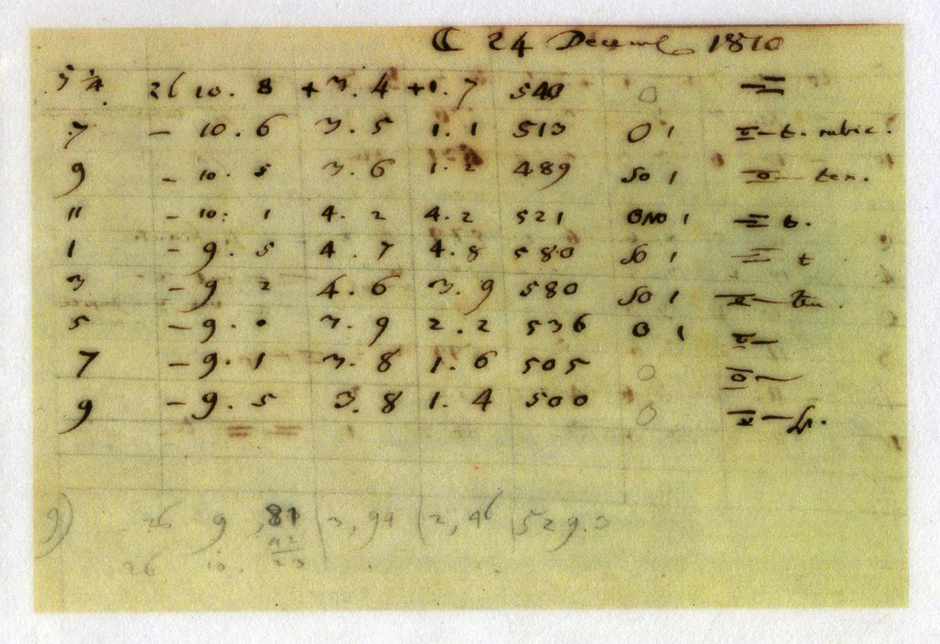 ☾ 24 Decemb 1810
5 3/4 26 10. 8 +3. 4 +1. 7 540 0
7 – 10. 6 3. 5 1. 1 513 O 1 t. rubic.
9 – 10. 5 3. 6 1. 2 489 SO 1 ten.
11 – 10. 1 4. 2 4. 2 521 ONO 1 t.
1 – 9. 5 4. 7 4. 8 580 SO 1 t
3 – 9 2 4. 6 3. 9 580 SO 1 ten.
5 – 9. 0 3. 9 2. 2 536 O 1
7 – 9. 1 3. 8 1. 6 505 0
9 – 9. 5 3. 8 1. 4 500 0
9) 26 9 ,81 3,94 2,46 529.3
42
26 10. 23